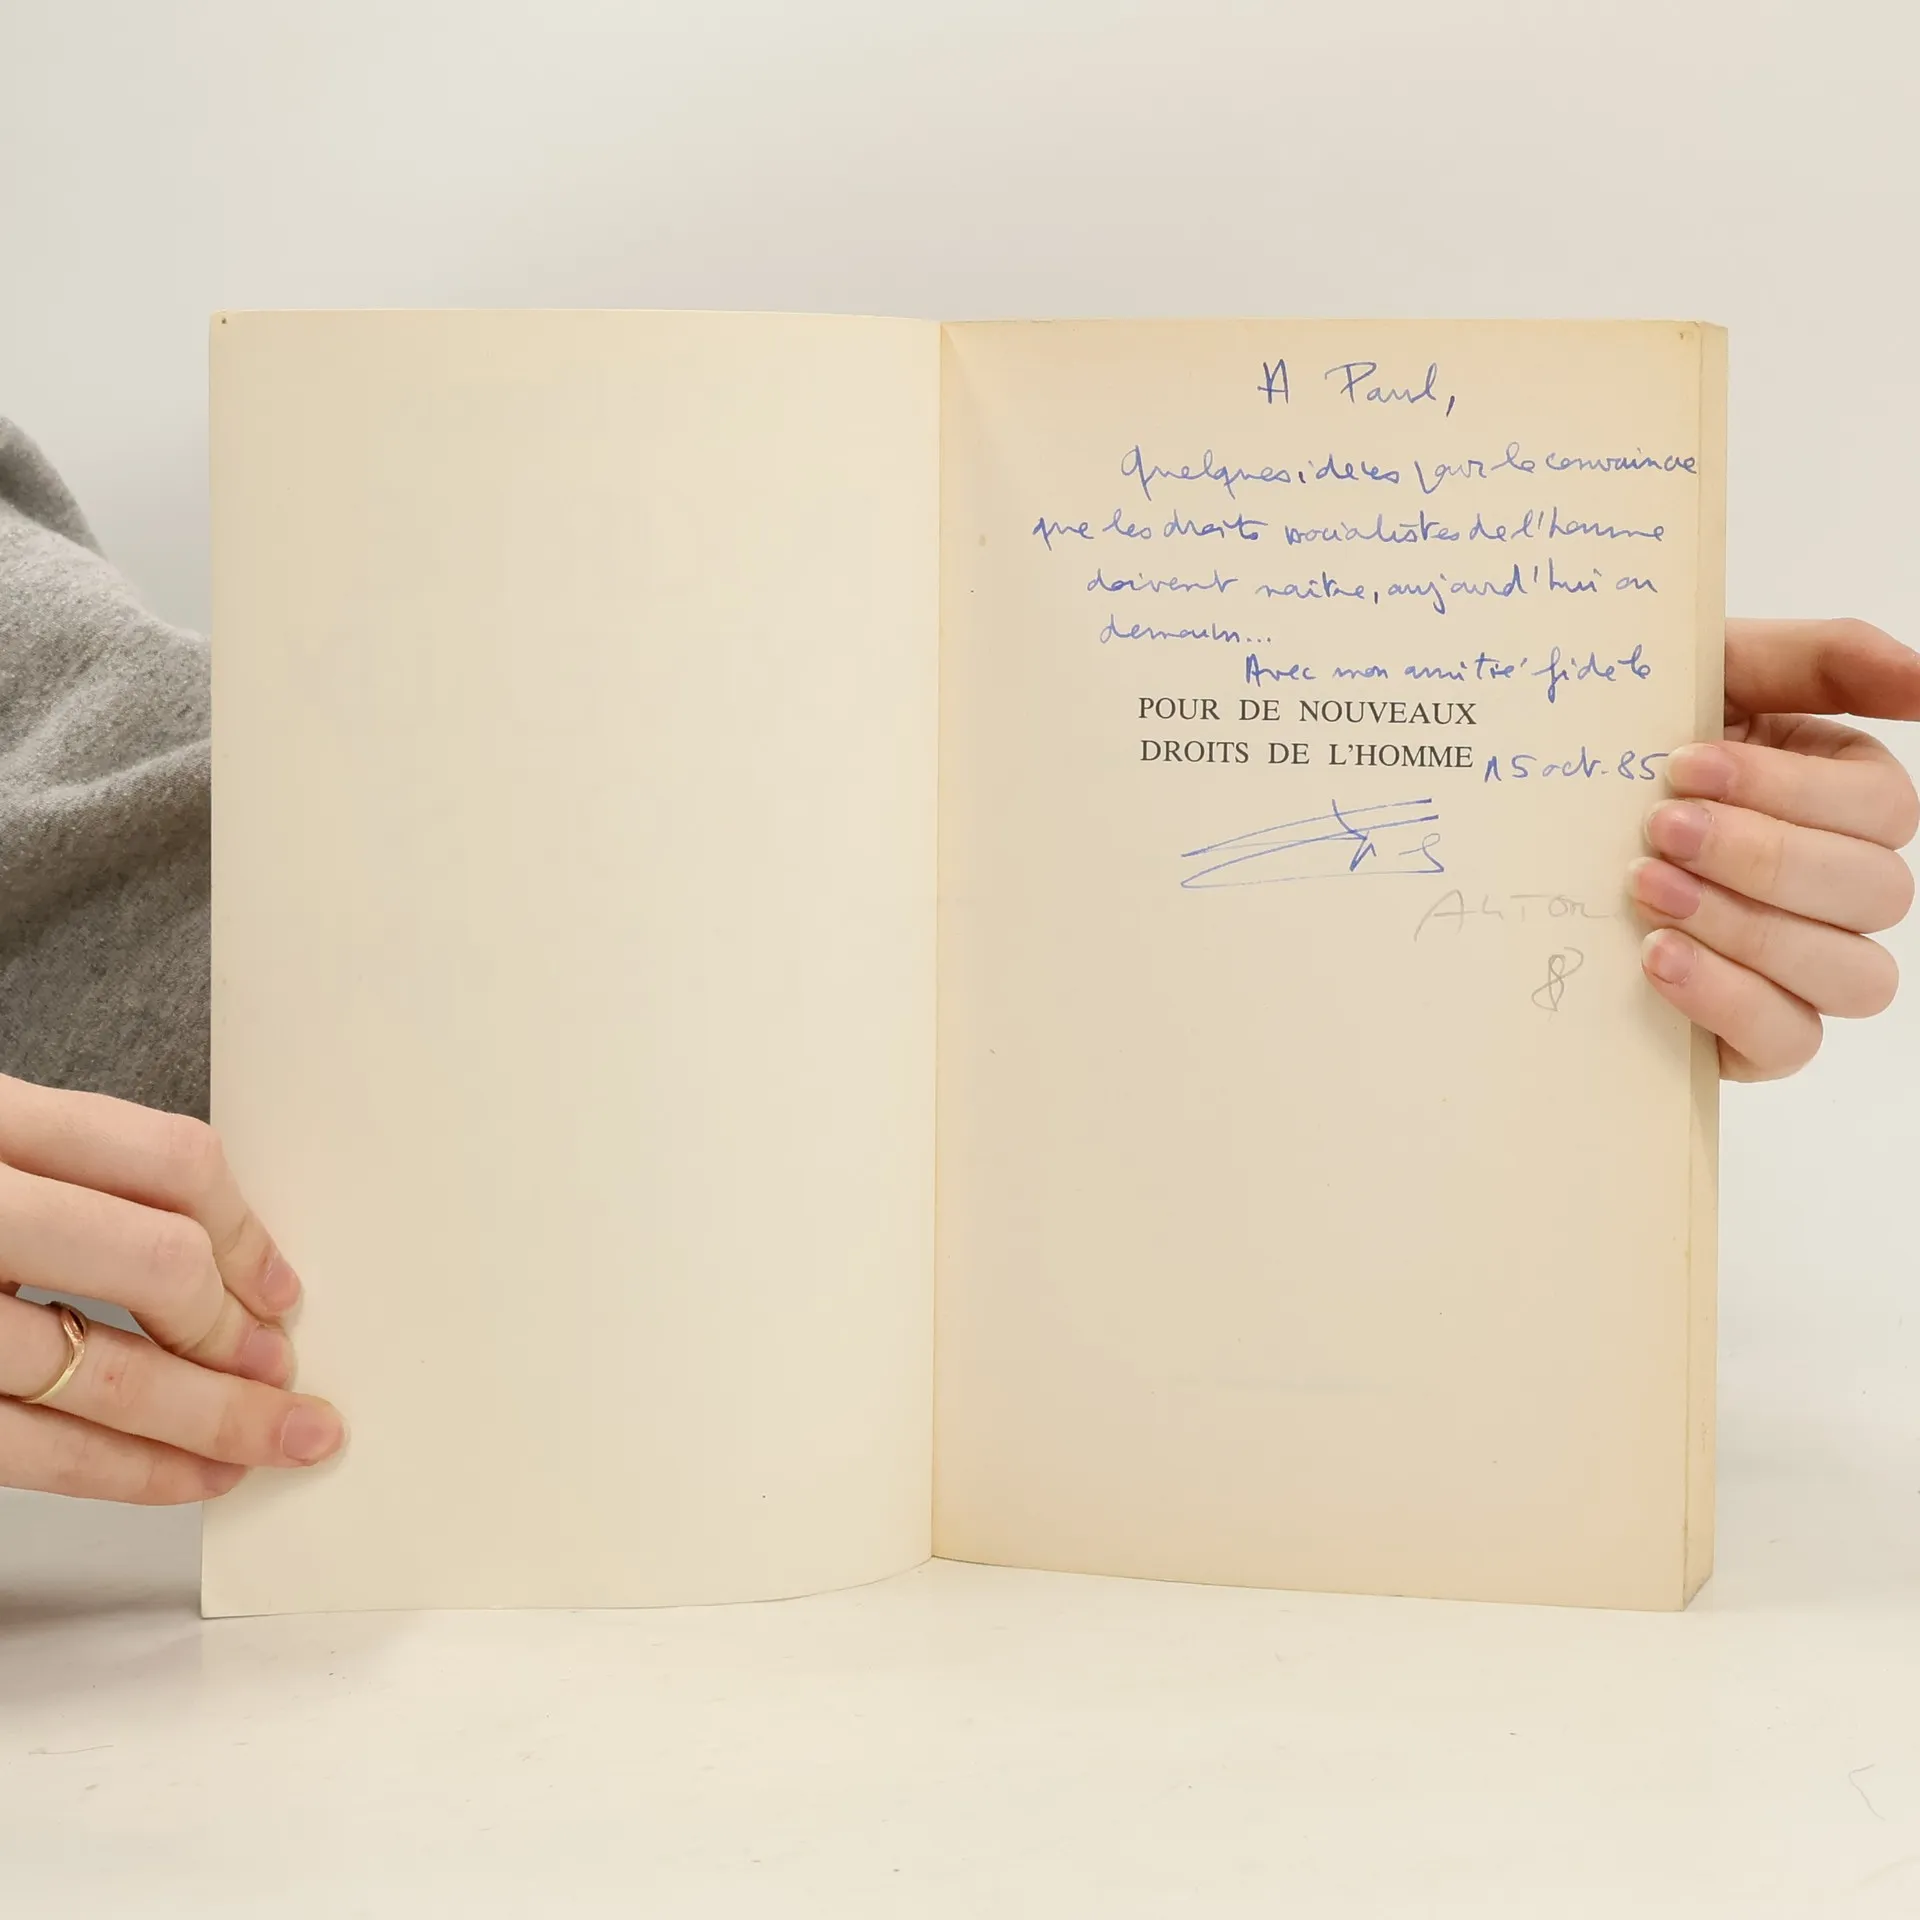 A Paul,
Quelques idées pour le convaincre
que les droits socialistes de l'homme
doivent naître, aujourd'hui ou
demain...
Avec mon amitié fidèle
POUR DE NOUVEAUX
DROITS DE L'HOMME
15 oct. 85
8